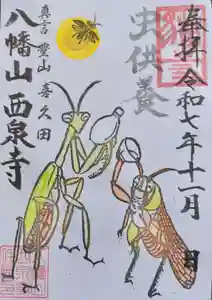 奉拝 令和七年十一月 日
虫供養
真言 豊山 喜久田
八幡山 西泉寺